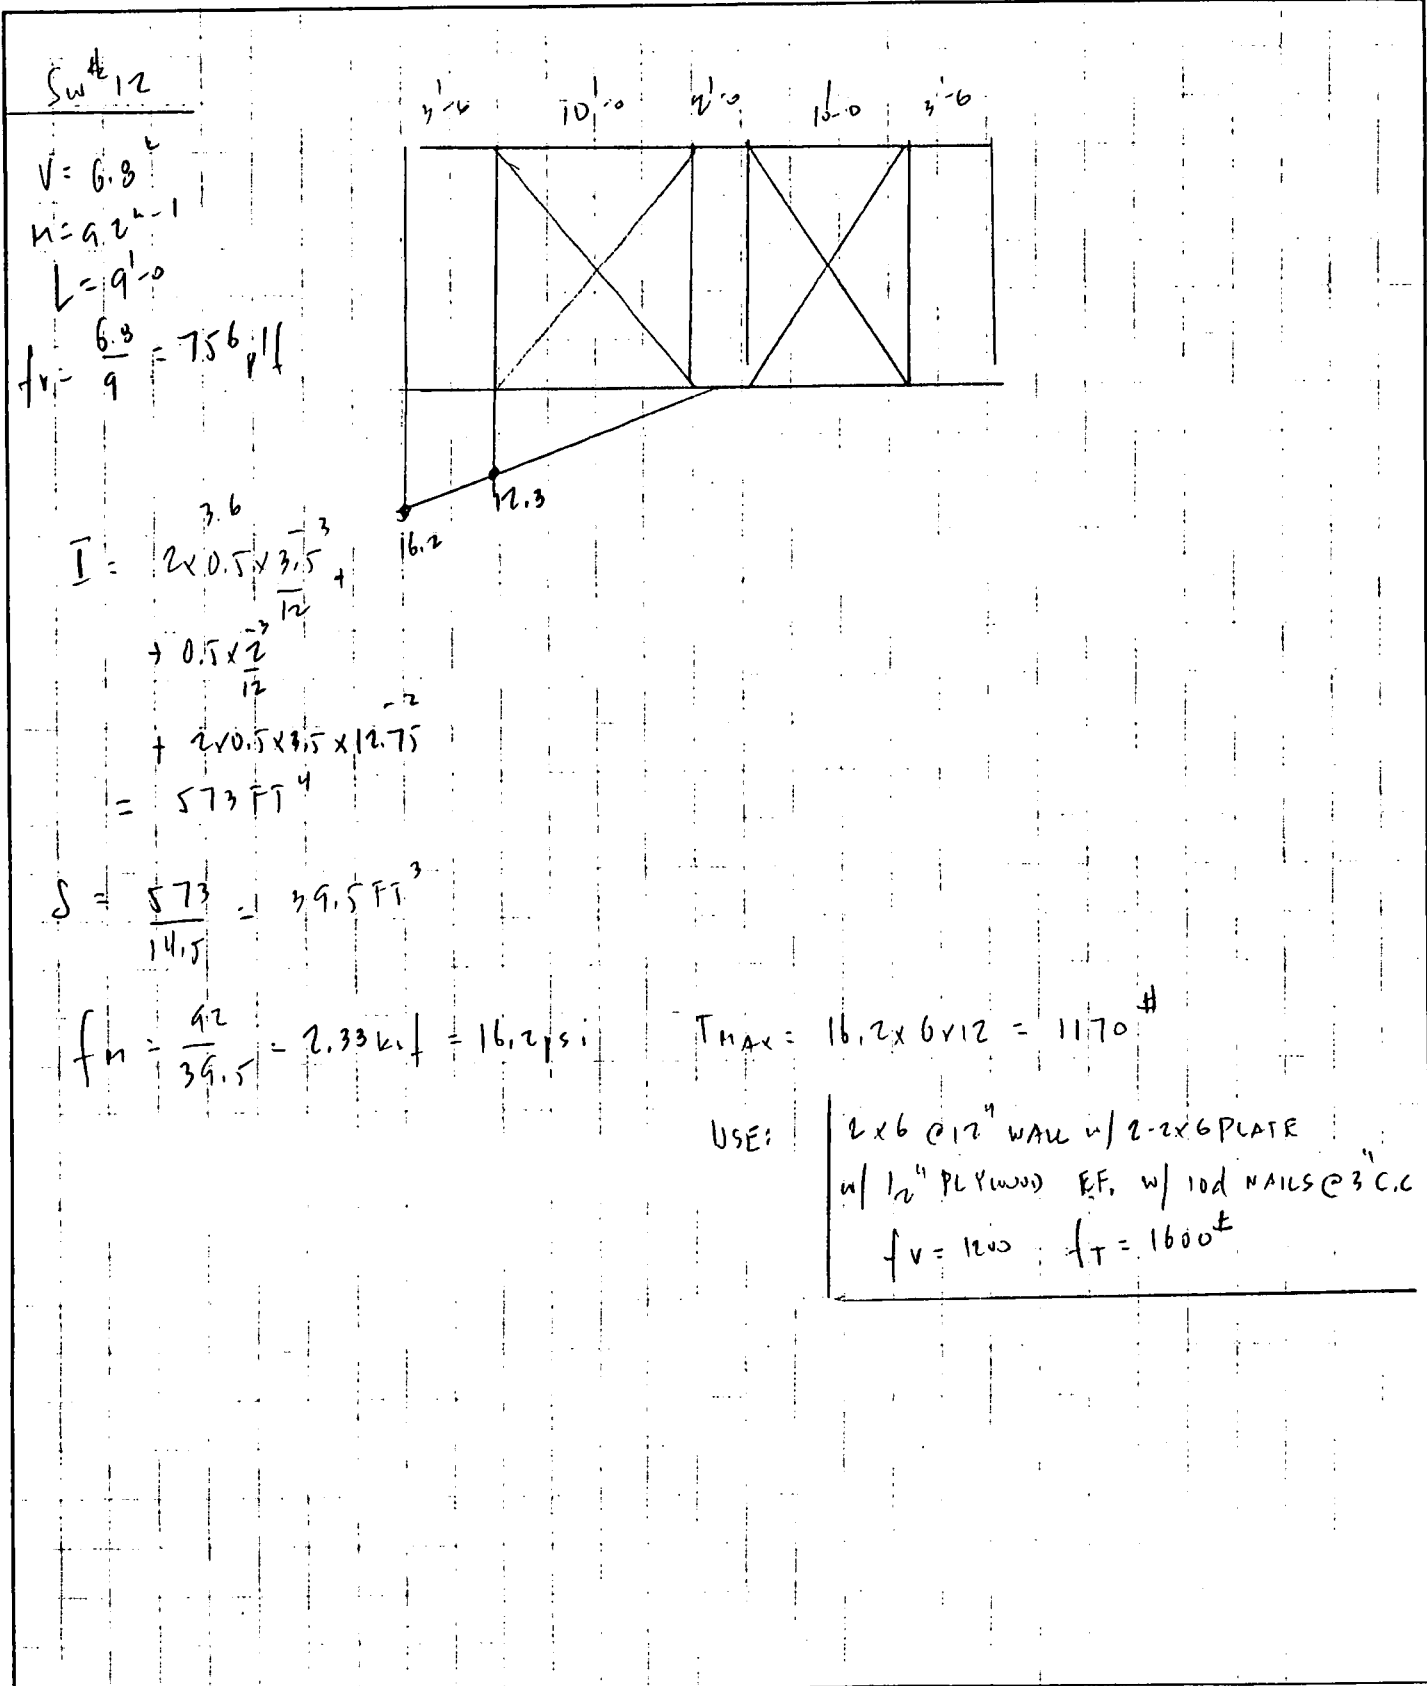 SW #12
3'-6 10'-0 2'-0 10-0 3'-6
V = 6.8 k
M = 92 k-1
L = 9'-0
fv = 6.8 / 9 = 756 plf
12.3
16.2
3.6
I = 2x0.5x3.5^3 / 12 +
+ 0.5x2^3 / 12
+ 2x0.5x3.5x12.75^2
= 573 FT^4
S = 573 / 14.5 = 39.5 FT^3
fM = 92 / 39.5 = 2.33 ksf = 16.2 psi TMAX = 16.2x6x12 = 1170 #
USE: 2x6 @12" WALL w/ 2-2x6 PLATE
w/ 1/2" PLYWOOD EF. w/ 10d NAILS @ 3" C.C
fv = 1200 fT = 1600#